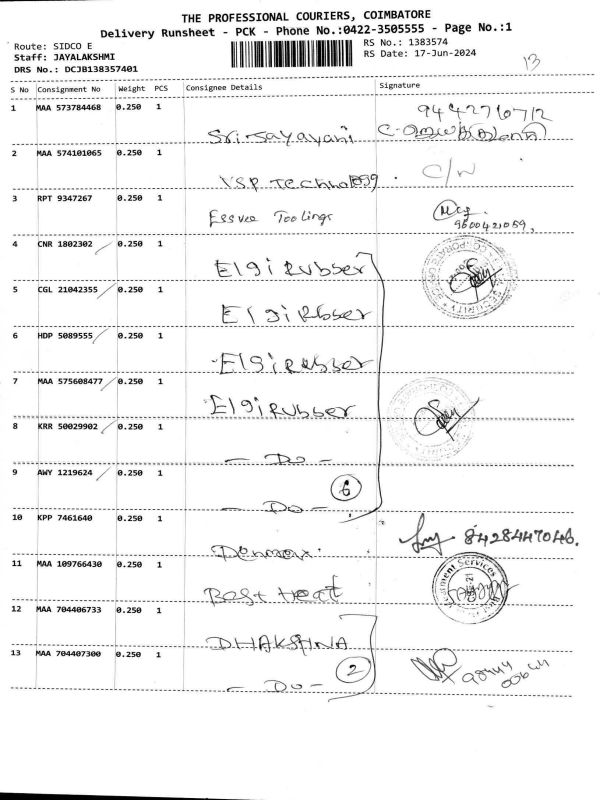 THE PROFESSIONAL COURIERS, COIMBATORE
Delivery Runsheet - PCK - Phone No.:0422-3505555 - Page No.:1
Route: SIDCO E
RS No.: 1383574
Staff: JAYALAKSHMI
RS Date: 17-Jun-2024
DRS No.: DCJB138357401
13
S No Consignment No Weight PCS Consignee Details Signature
1 MAA 573784468 0.250 1
9442767112
2 MAA 574101065 0.250 1
C/N
VSP Technology
3 RPT 9347267 0.250 1
Essvee Toolings
9500421059,
4 CNR 1802302 0.250 1
Elgi Rubber
5 CGL 21042355 0.250 1
Elgi Rubber
6 HDP 5089555 0.250 1
Elgi Rubber
7 MAA 575608477 0.250 1
Elgi Rubber
8 KRR 50029902 0.250 1
- Do -
9 AWY 1219624 0.250 1
6
- Do -
10 KPP 7461640 0.250 1
8428447046.
11 MAA 109766430 0.250 1
Best Heat
12 MAA 704406733 0.250 1
DHAKSHNA
13 MAA 704407300 0.250 1
2
- Do -